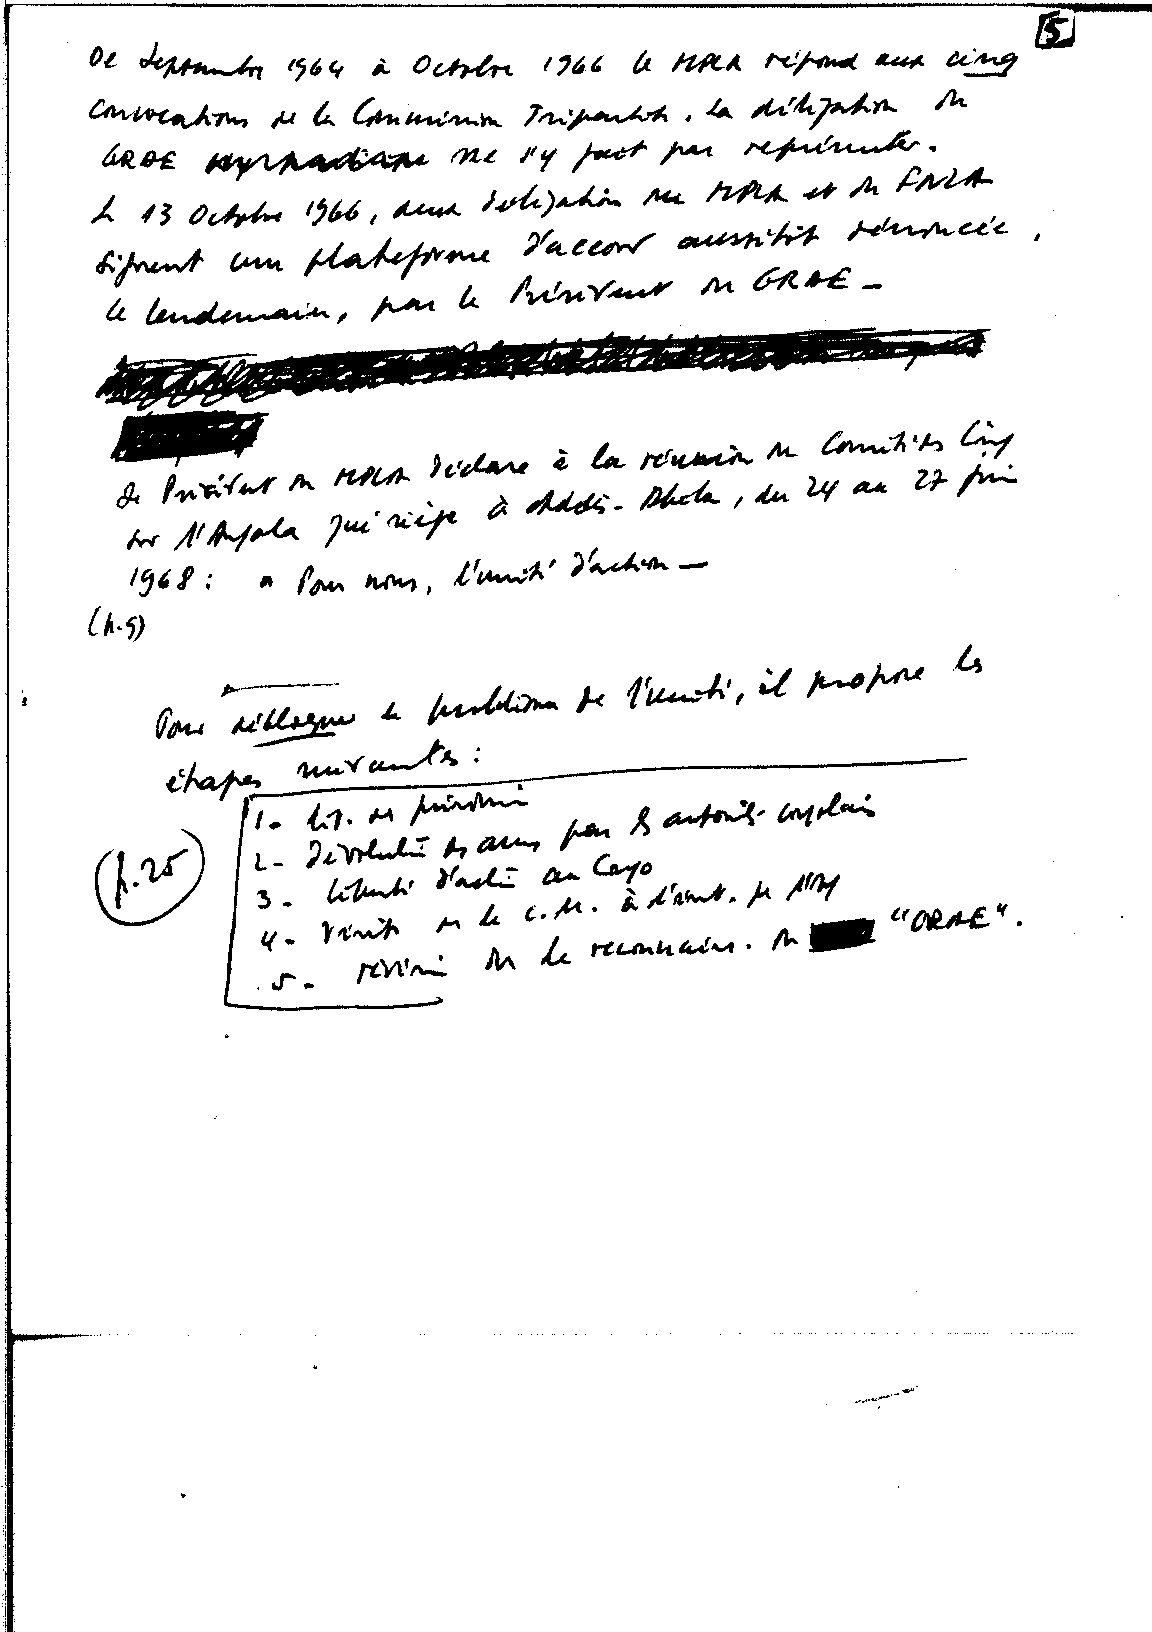 5
De Septembre 1964 à Octobre 1966 le MPLA répond aux cinq
convocations de la Commission Tripartite. La délégation du
GRAE ne s'y fait pas représenter.
Le 13 Octobre 1966, deux délégation du MPLA et du FNLA
signent une plateforme d'accord aussitôt dénoncée,
le lendemain, par le Président du GRAE —
Le Président du MPLA déclare à la réunion du Comité des Cinq
sur l'Angola qui siège à Addis-Abeba, du 24 au 27 juin
1968 : « Pour nous, l'unité d'action —
(p. 9)
Pour débloquer le problème de l'unité, il propose les
étapes suivantes :
1- lib. des prisonni
2- dévoluti des armes par les autorités congolais
3- liberté d'acti au Congo
(p. 25)
4- visite de le C.M. à l'int. de l'Ang
5- révisi de la reconnaiss. du "GRAE".